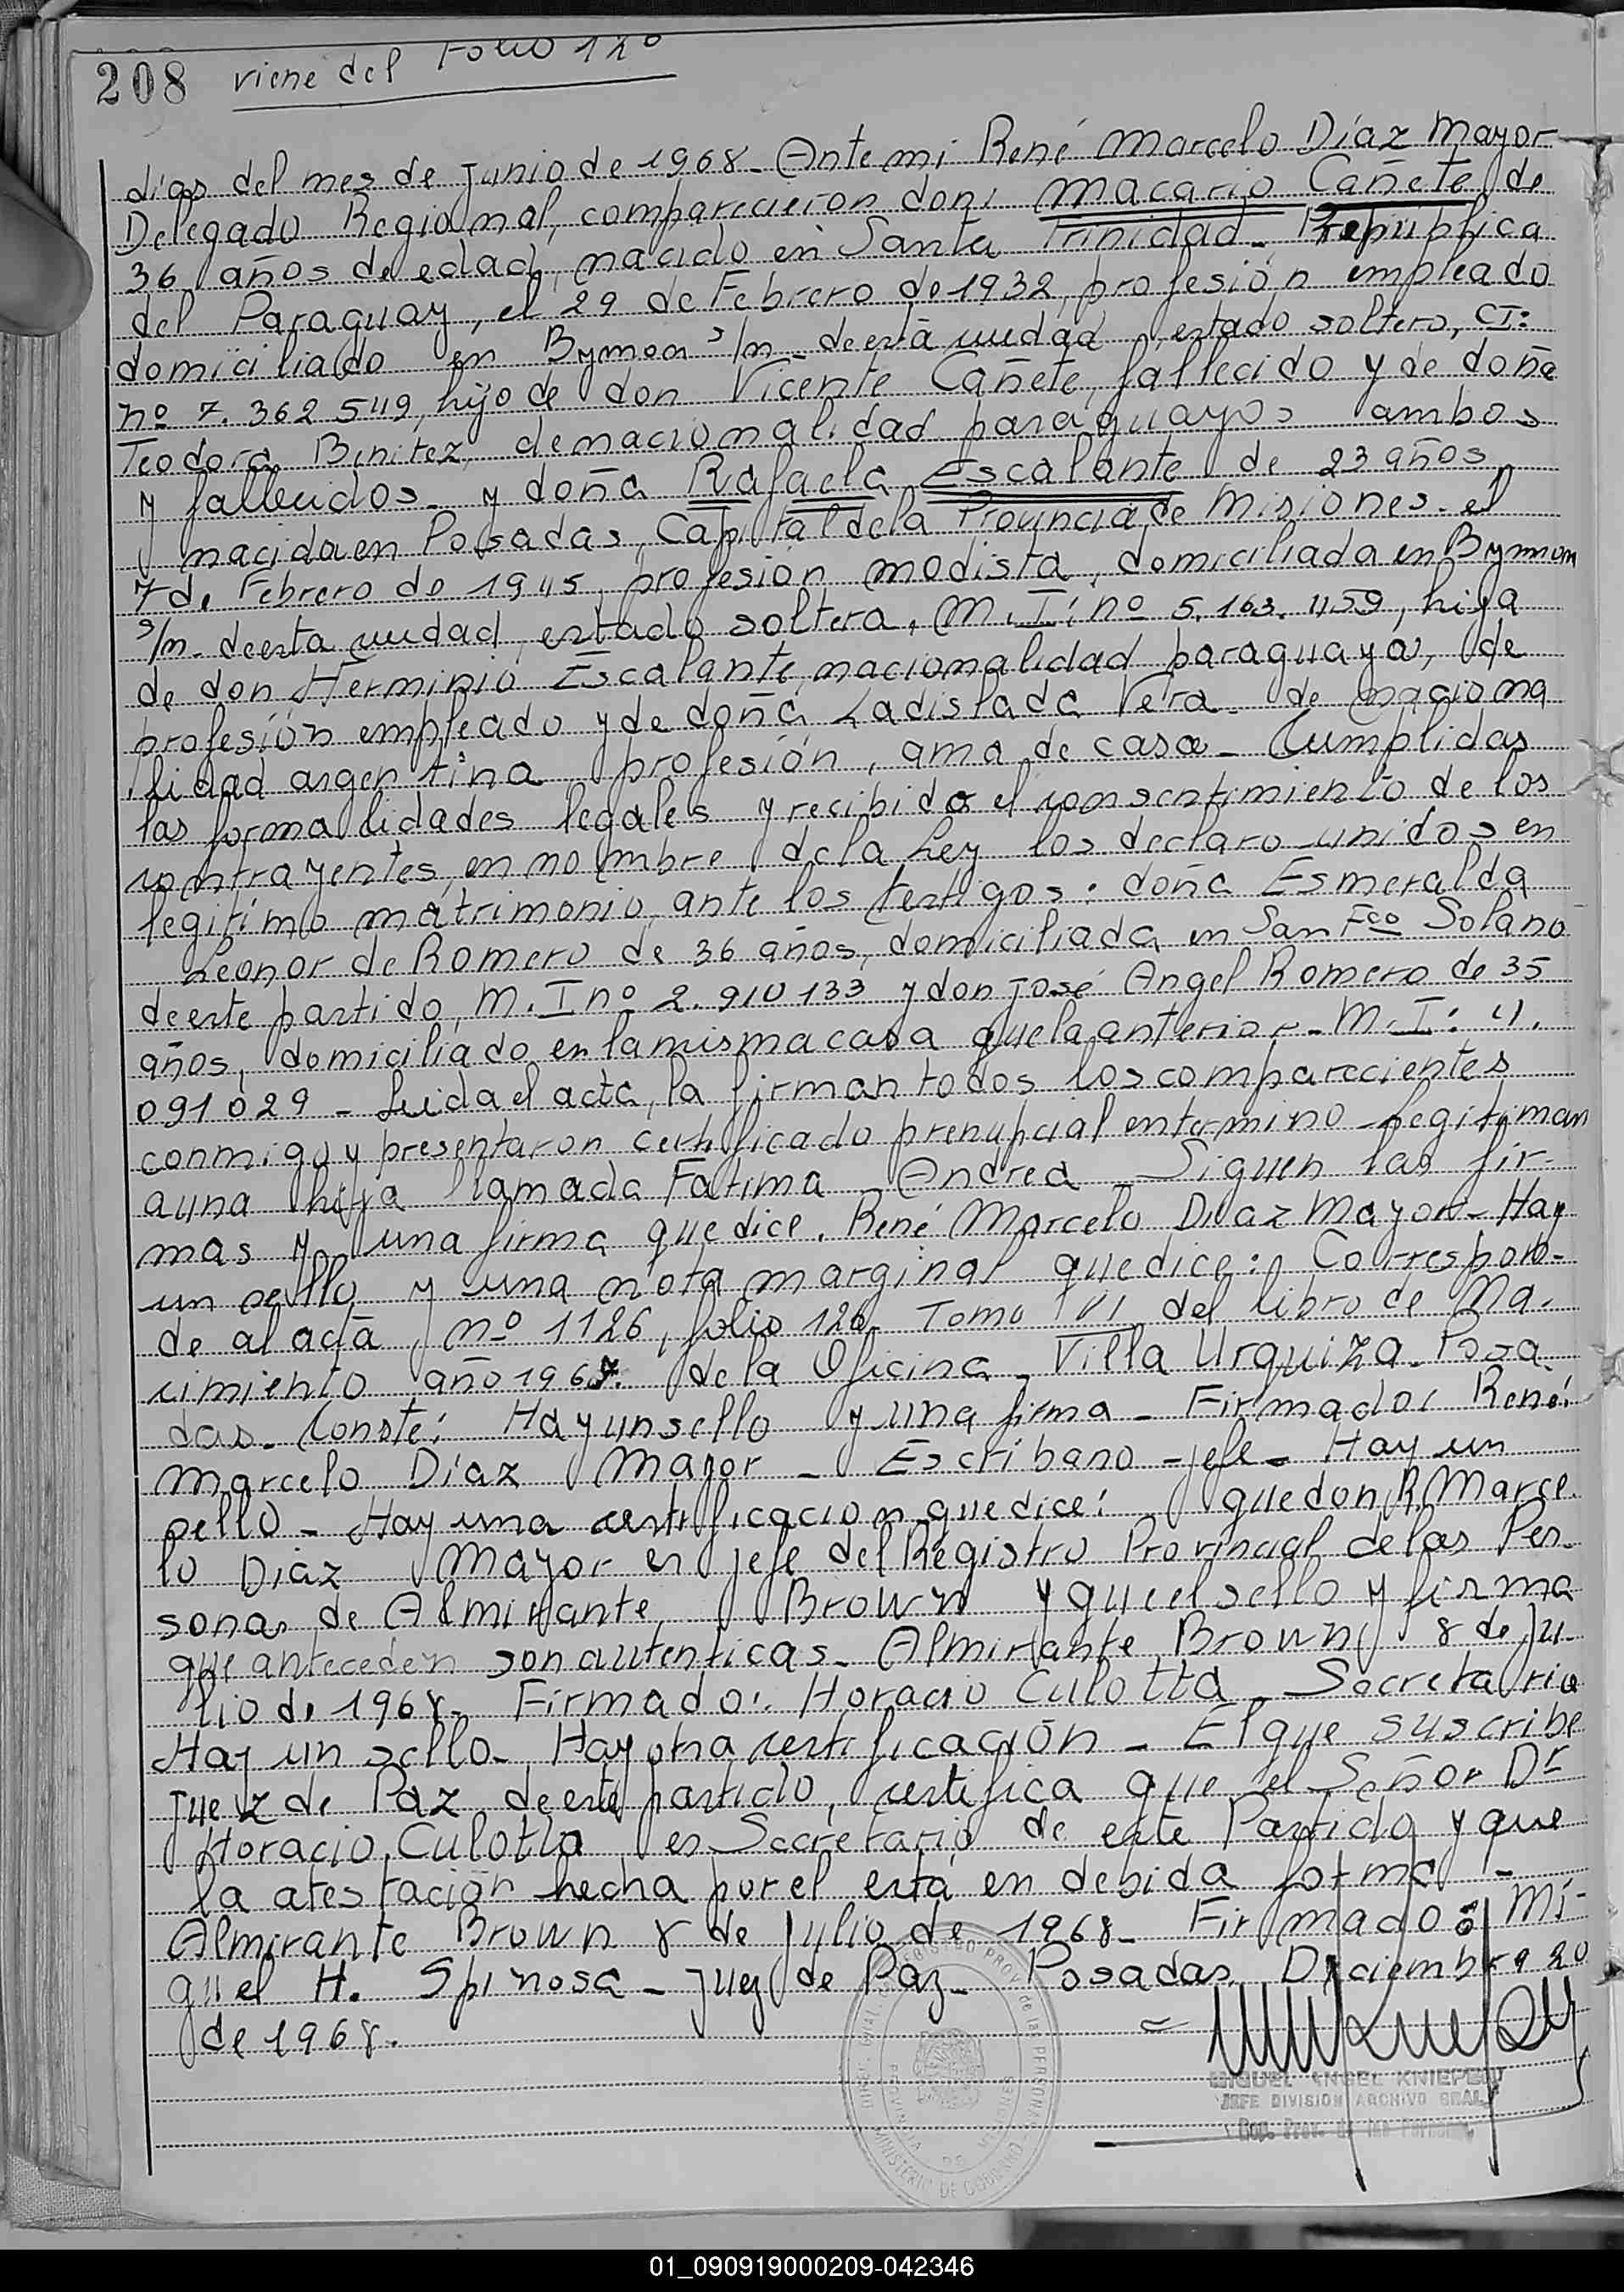 208 viene del Folio 120
días del mes de junio de 1968. Ante mi René Marcelo Díaz Mayor
Delegado Regional, comparecieron don: Macario Cañete de
36 años de edad, nacido en Santa Trinidad. República
del Paraguay, el 29 de Febrero de 1932, profesión empleado
domiciliado en Bynnon s/n. de esta ciudad, estado soltero, CI:
nº 7.362549, hijo de don Vicente Cañete, fallecido y de doña
Teodora Benitez, de nacionalidad paraguayos ambos
y fallecidos. y doña Rafaela Escalante de 23 años
nacida en Posadas, Capital de la Provincia de Misiones. el
7 de Febrero de 1945, profesión modista, domiciliada en Bynnon
s/n. de esta ciudad, estado soltera, M.I: nº 5.163.459, hija
de don Herminio Escalante, nacionalidad paraguaya, de
profesión empleado y de doña Ladislada Vera. de naciona
lidad argentina profesión, ama de casa. Cumplidas
las formalidades legales y recibido el consentimiento de los
contrayentes, en nombre de la Ley los declaro unidos en
legitimo matrimonio, ante los testigos: doña Esmeralda
Leonor de Romero de 36 años, domiciliada en San Fco Solano
de este partido, M.I nº 2.910133 y don José Angel Romero de 35
años, domiciliado en la misma casa que la anterior. M.I: 4.
091029 - Leida el acta, la firman todos los comparecientes
conmigo y presentaron certificado prenupcial en termino legitiman
a una hija llamada Fatima Andrea - Siguen las fir-
mas y una firma que dice. René Marcelo Diaz Mayor. Hay
un sello y una nota marginal que dice: Correspon-
de al acta nº 1126, folio 126. Tomo VI del libro de Na.
cimiento año 1967. de la Oficina - Villa Urquiza. Posa.
das. Conste: Hay un sello y una firma - Firmado: René:
Marcelo Díaz Mayor - Escribano - jefe - Hay un
sello - Hay una certificacion que dice: que don R Marce.
lo Diaz Mayor es jefe del Registro Provincial de las Per-
sonas de Almirante Brown y que el sello y firma
que anteceden son autenticas. Almirante Brown 8 de Ju-
lio de 1968. Firmado: Horacio Culotta. Secretario
Hay un sello. Hay otra certificación - El que suscribe
Juez de Paz de este partido, certifica que el Señor Dr
Horacio Culotta es Secretario de este Partido y que
la atestación hecha por el está en debida forma -
Almirante Brown 8 de Julio de 1968. Firmado: Mi-
guel H. Spinosa - Juez de Paz - Posadas, Diciembre 20
de 1968.
MIGUEL ANGEL KNIEPER
JEFE DIVISION ARCHIVO GRAL.
PROVINCIA DE MISIONES
MINISTERIO DE GOBIERNO
01_090919000209-042346